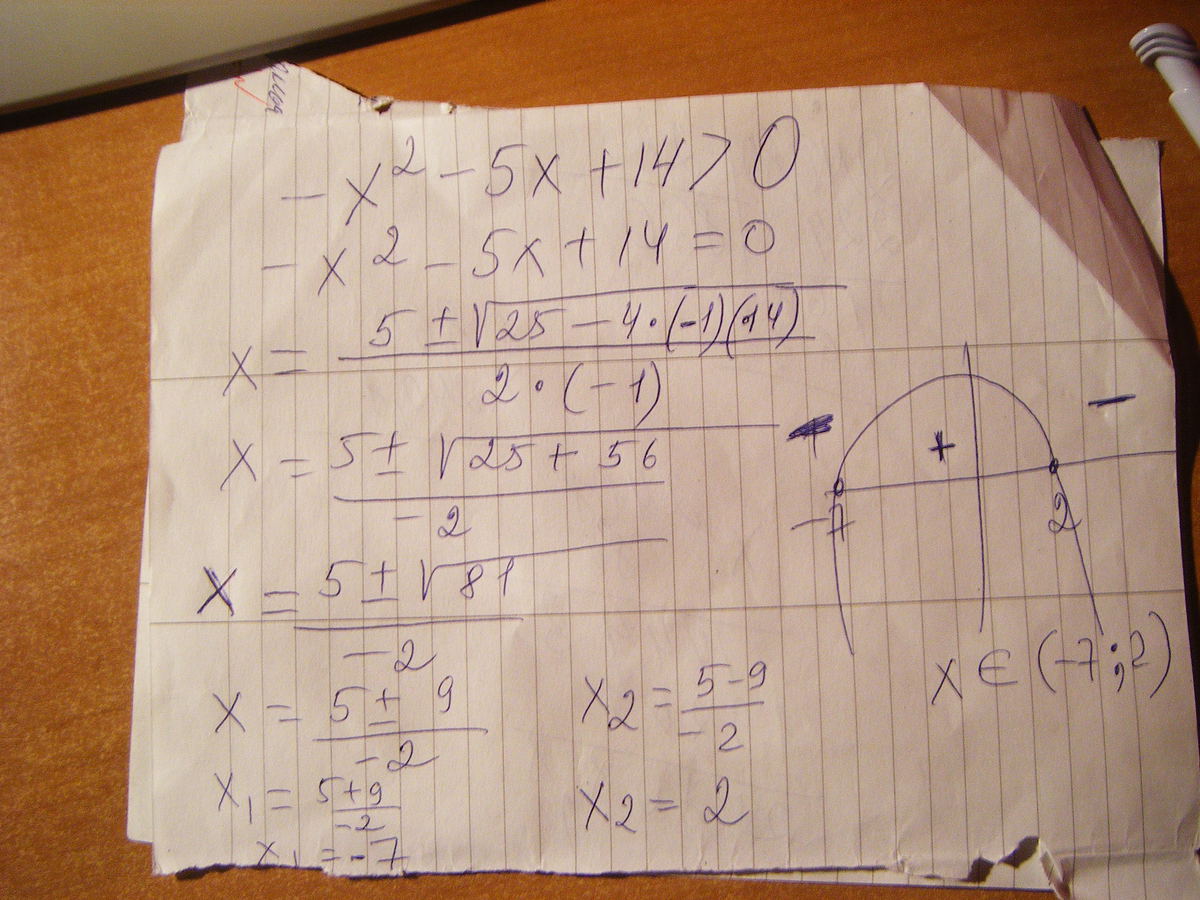 - x² - 5x + 14 > 0
- x² - 5x + 14 = 0
x = (5 ± √(25 - 4·(-1)(14))) / (2·(-1))
x = (5 ± √(25 + 56)) / (-2)
x = (5 ± √81) / (-2)
x = (5 ± 9) / (-2)
x₁ = (5+9) / (-2)
x₁ = -7
x₂ = (5-9) / (-2)
x₂ = 2
+
-
-7
2
x ∈ (-7; 2)